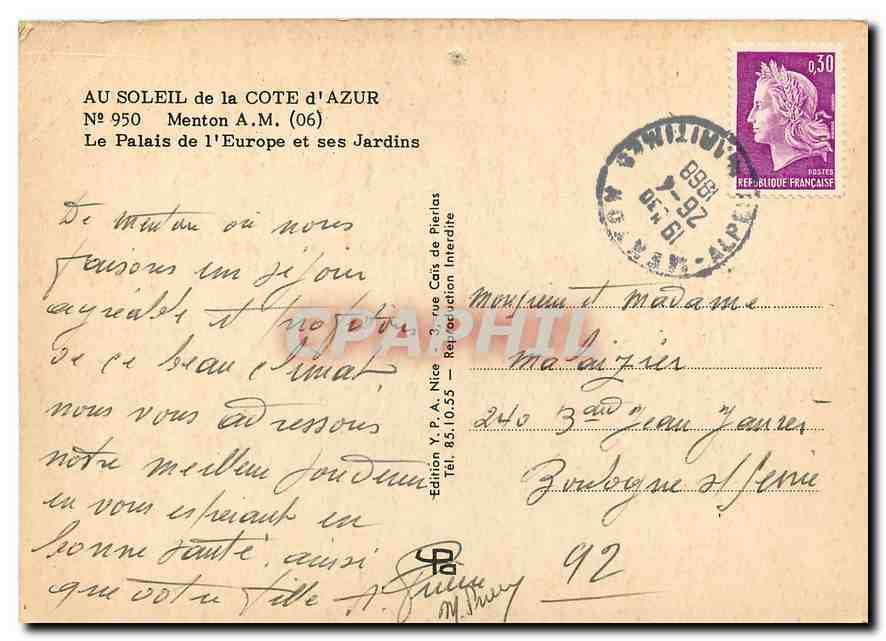 AU SOLEIL de la COTE d'AZUR
Nº 950 Menton A.M. (06)
Le Palais de l'Europe et ses Jardins
De menton où nous
faisons un séjour
agréable et profitons
de ce beau climat
nous vous adressons
notre meilleur souvenir
en vous espérant en
bonne santé, ainsi
que votre fille A.
Edition Y.P.A. Nice - 3, rue Caïs de Pierlas
Tél. 85.10.55 — Reproduction Interdite
0,30
POSTES
REPUBLIQUE FRANÇAISE
MENTON
ALPES MARITIMES
19H30
26-4
1968
Monsieur et Madame
Malaizier
240 Bard Jean Jaurès
Boulogne s/ Seine
92
CPAPHIL